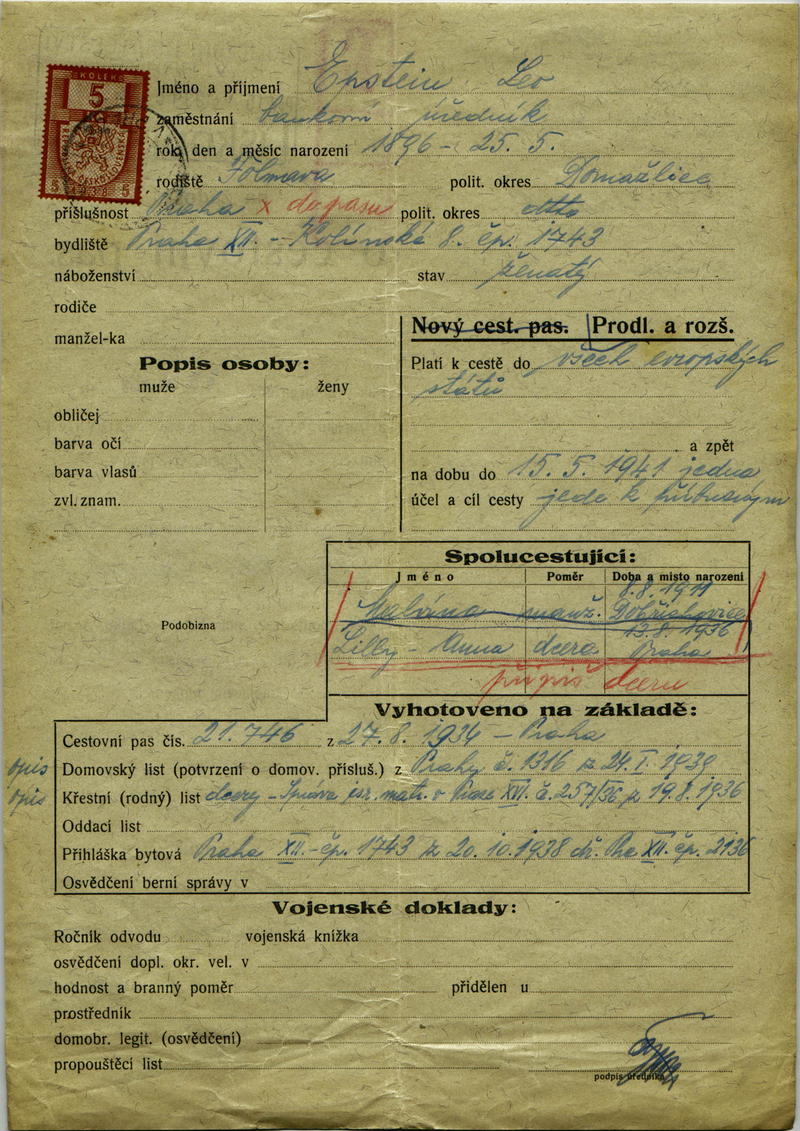 KOLEK
5
ČESKOSLOVENSKÁ
5 5
Jméno a příjmení Epstein Leo
zaměstnání bankovní úředník
rok, den a měsíc narození 1896 - 25. 5.
rodiště Folmava polit. okres Domažlice
příslušnost Praha x do pasu polit. okres dtto
bydliště Praha XII. - Kolínská 8. čp. 1743
náboženství stav ženatý
rodiče
manžel-ka
Nový cest. pas. Prodl. a rozš.
Popis osoby:
muže ženy
Platí k cestě do všech evropských
států
obličej
barva očí
a zpět
barva vlasů
na dobu do 15. 5. 1941 jedna
zvl. znam.
účel a cíl cesty jede k příbuzným
Spolucestující:
Jméno Poměr Doba a místo narození
8. 8. 1911
manž. Dobřichovice
13. 8. 1936
Lilly - Anna dcera Praha
připiš dceru
Podobizna
Vyhotoveno na základě:
Cestovní pas čís. 21.746 z 27. 8. 1934 - Praha
opis Domovský list (potvrzení o domov. přísluš.) z Prahy č. 1316 z 24. I. 1939
opis Křestní (rodný) list dcery - Správa isr. matr. v Praze XVI. č. 257/36 z 19. 8. 1936
Oddací list
Přihláška bytová Praha XII. - čp. 1743 z 20. 10. 1938 XII. čp. 2136
Osvědčení berní správy v
Vojenské doklady:
Ročník odvodu vojenská knížka
osvědčení dopl. okr. vel. v
hodnost a branný poměr přidělen u
prostředník
domobr. legit. (osvědčení)
propouštěcí list
podpis úředníka